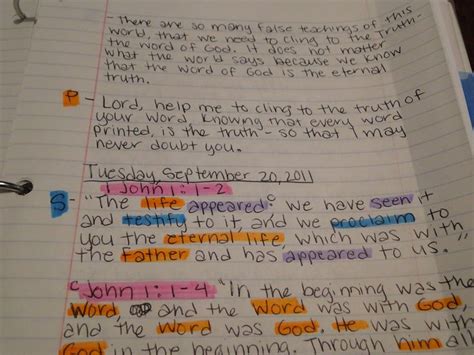 - There are so many false teachings of this
world, that we need to cling to the Truth-
the word of God. It does not matter
what the world says because we know
that the word of God is the eternal
truth.
P - Lord, help me to cling to the truth of
your Word, knowing that every word
printed, is the truth - so that I may
never doubt you.
Tuesday, September 20, 2011
1 John 1:1-2
S - "The life appeared; we have seen it
and testify to it, and we proclaim to
you the eternal life, which was with
the Father and has appeared to us."
c John 1:1-4 "In the beginning was the
Word and the Word was with God,
and the Word was God. He was with
God in the beginning. Through him all